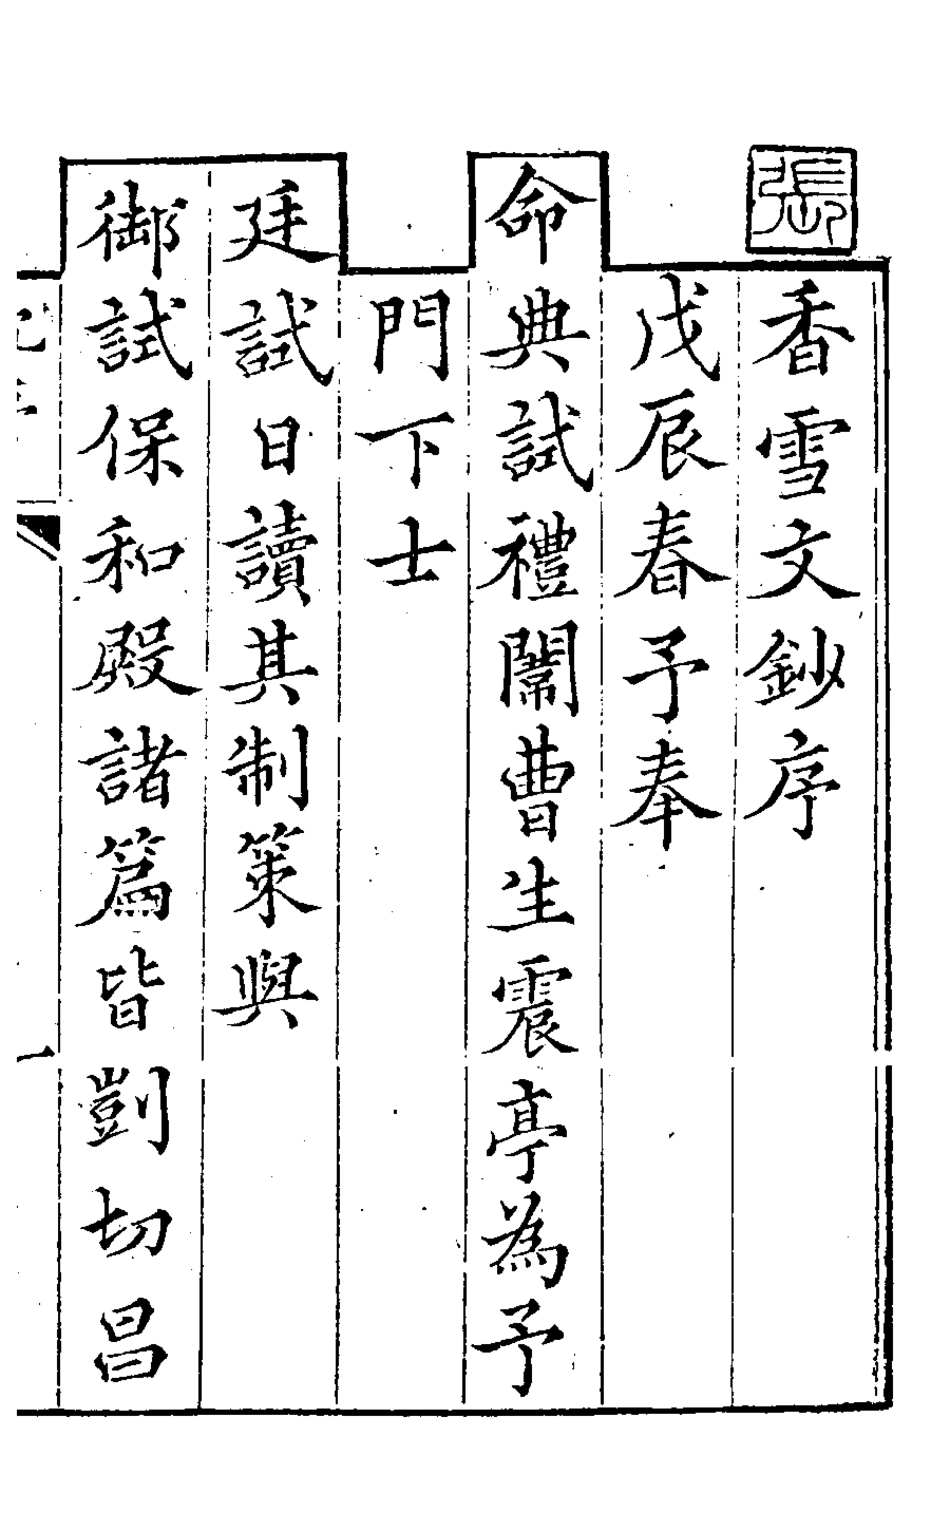 張
香雪文鈔序
戊辰春予奉
命典試禮闈曹生震亭為予
門下士
廷試日讀其制策與
御試保和殿諸篇皆剴切昌